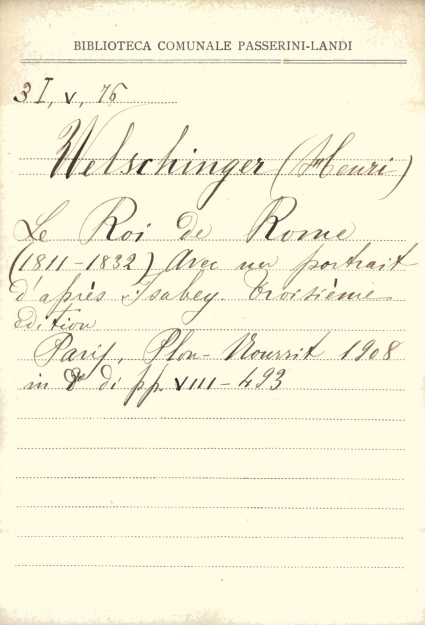 BIBLIOTECA COMUNALE PASSERINI-LANDI
3 I, v, 76
Welschinger (Henri)
Le Roi de Rome
(1811-1832) Avec un portrait
d'après Isabey. Troisième
édition
Paris, Plon-Nourrit 1908
in 8° di pp. VIII-493